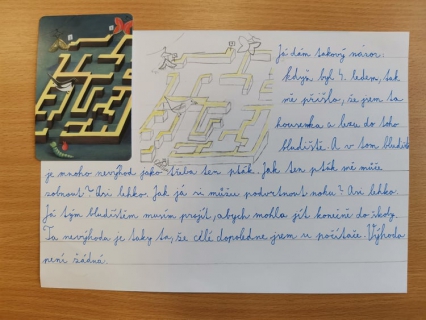 Já dám takový názor:
když byl 4. leden, tak
mě přišlo, že jsem ta
housenka a lezu do toho
bludiště. A v tom bludišti
je mnoho nevýhod jako třeba ten pták. Jak ten pták mě může
sobnout? Asi lehko. Jak já si můžu podvrtnout nohu? Asi lehko.
Já tým bludištěm musím projít, abych mohla jít konečně do školy.
Ta nevýhoda je taky ta, že celé dopoledne jsem u počítače. Výhoda
není žádná.